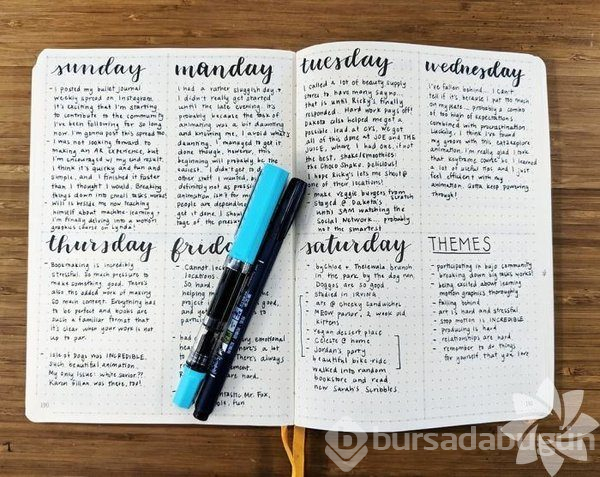 sunday
- I posted my bullet journal
weekly spread on Instagram.
It's exciting that I'm starting
to contribute to the community
I've been following for so long
now. I'm gonna post this spread too
- I was not looking forward to
making an AR experience, but
I'm encouraged w/ my end result.
I think it's quirky and fun and
simple, and I finished it faster
than I thought I would. Breaking
things down into small tasks works!
- Will is beside me now teaching
himself about machine learning &
I'm finally delving into a motion
graphics course on Lynda!
monday
I had a rather sluggish day &
I didn't really get started
until the late evening. It's
probably because the task of
animating was a bit daunting
and knowing me, I avoid what's
daunting. I managed to get it
done though, however, this
beginning will probably be the
easiest. I didn't get to do
other stuff I wanted, but
definitely not as precise
animation isn't for me
people are depending
get it done. I should
stage of the present
tuesday
I called a lot of beauty supply
stores to have many saying
that is until Ricky's finally
responded. Hard work pays off!
Dakota also helped me get a
possible lead at CVS. We got
all of this done at JOE AND THE
JUICE, where I had one, if not
the best, shake/smoothies:
the Choco Shake. Delicious!
I hope Ricky's lets me shoot @
one of their locations!
- make veggie burgers from scratch
- stayed @ Dakota's
until 5AM watching the
Social Network... probably
not the smartest
wednesday
I've fallen behind... I can't
tell if it's because I put too much
on my plate, probably a combo
of too high of expectations
combined with procrastination
Luckily, I think I've found
my groove with this exterplore
animation. I'm really glad I took
that keyframe course as I learned
a lot of useful tips and I just
feel efficient with my
animation. Gotta keep powering
through!
thursday
- Bookmaking is incredibly
stressful. So much pressure to
make something good. There's
also the added work of making
so much content. Everything has
to be perfect and books are
such a familiar format that
it's clear when your work is not
up to par.
Isle of Dogs was INCREDIBLE.
Such beautiful animation.
My only issue: white savior??
Karen Gillan was there, too!
friday
- Cannot
locations
so hard
helping
project
get
good
- really
emotional
head
there's a lot
to
There's always
are hard.
Fantastic Mr. Fox,
folk, fun
saturday
- bychloe & Thelewala brunch
in the park by the dog run
Doggos are so good
- studied in IRVING
- ate @ cheeky sandwiches
- MEOW parlour, 2 week old
kittens
- vegan dessert place
- Celeste @ home
- Jordan's party
- beautiful bike ride
- walked into random
bookstore and read
new Sarah's Scribbles
THEMES
- participating in bujo community
- breaking down big tasks works!
- being excited about learning
motion graphics thoroughly
- falling behind
- art is hard and stressful
- stop motion is INCREDIBLE
- producing is hard
- relationships are hard
- remember to do things
for yourself that you love
190
bursadabugün